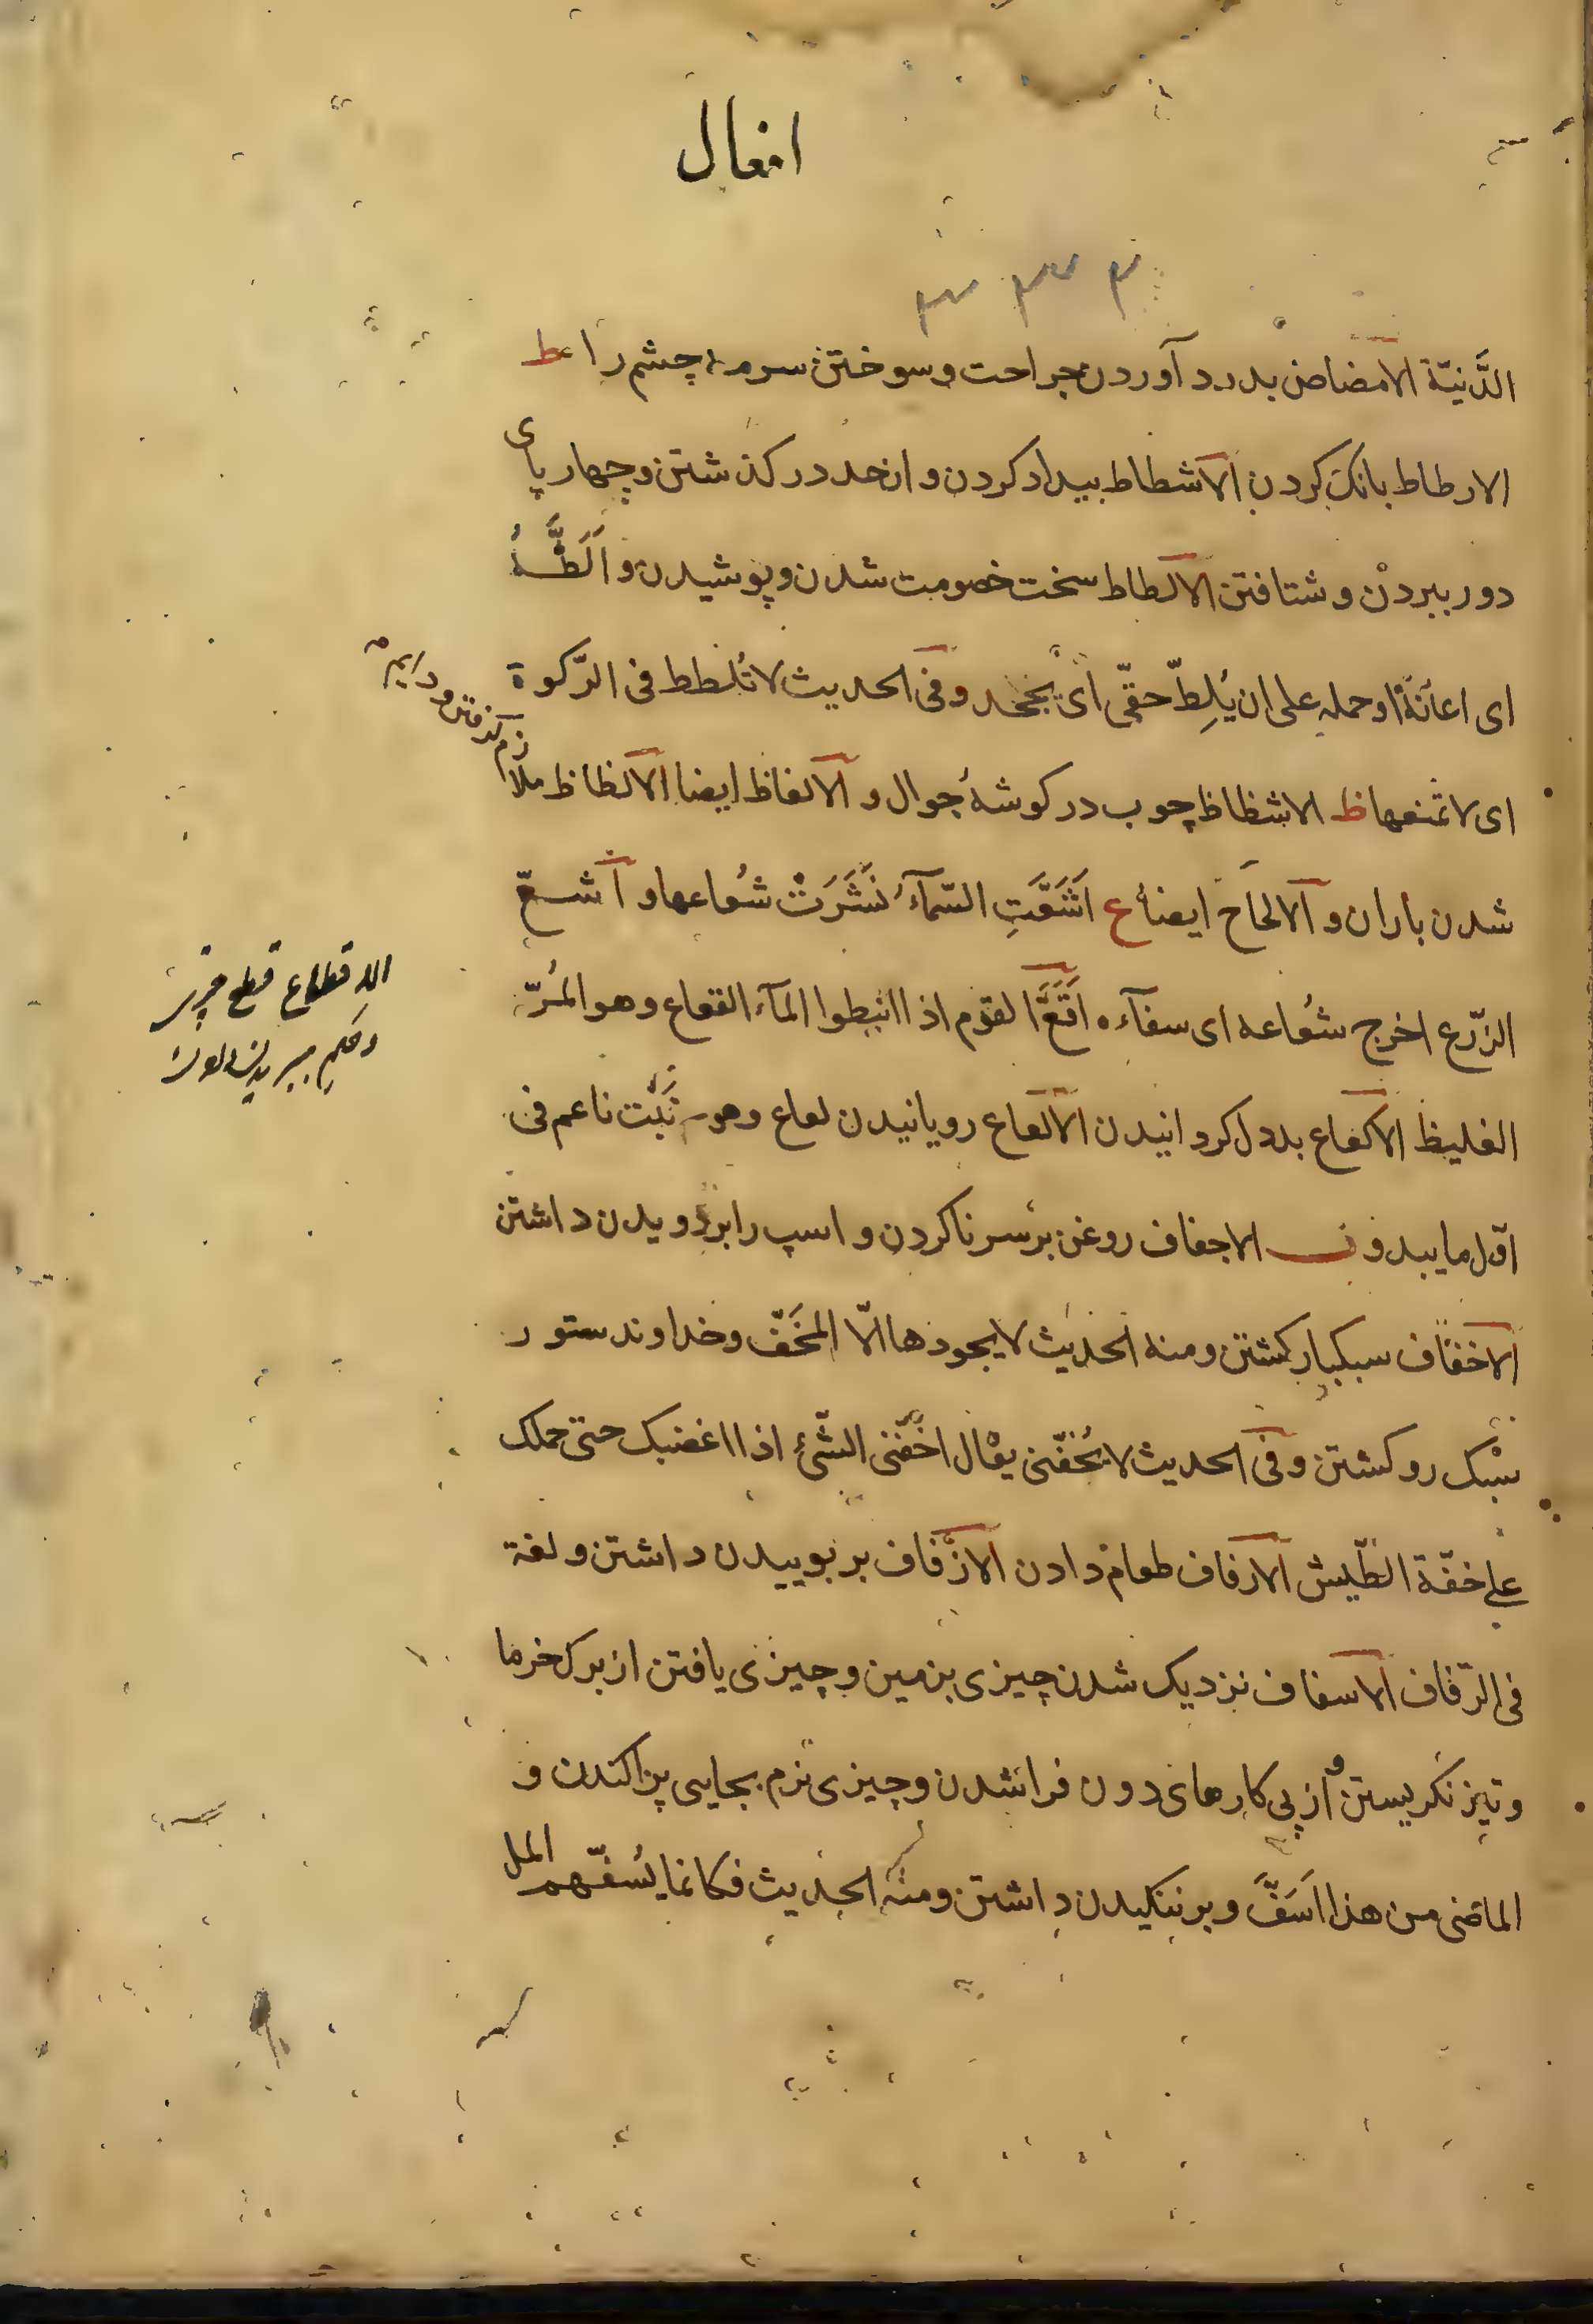 افعال
الدَّنيّة الامضاض بدرد آوردن جراحت و سوختن سرمه چشم را ط
الارطاط بانک کردن الاشطاط بیداد کردن و از حد در کذشتن و چهار پای
دور ببردن و شتافتن الالطاط سخت خصومت شدن و پوشیدن و اَلَطَّهُ
ای اعانَهُ او حمله علی ان یُلِطّ حقّی ای یجحد و فی الحدیث لا تُلطط فی الزّکوة
ای لا تمنعها ظ الاشظاظ چوب در کوشهٔ جوال و الانعاظ ایضا الالظاظ ملا
زم کرفتن و دایم
شدن باران و الالحاح ایضا ع اَشَعَّتِ السّمآءُ نَشَرَتْ شُعاعها و اشعّ
الزّرع اخرج شُعاعه ای سفآءه اَقَعَّ القوم اذا انبطوا المآء القعاع و هو المُرّ
الغلیظ الاکعاع بددل کردانیدن الالعاع رویانیدن لعاع و هو نَبْت ناعم فی
اوّل ما یبدو ف الاجفاف روغن بر سر نا کردن و اسپ را بر دویدن داشتن
الاخفاف سبکبار کشتن و منه الحدیث لا یجوزها الّا المُخِفّ و خداوند ستور
سبک رو کشتن و فی الحدیث لا یُخفّنی یقال اخفّنی الشّیٔ اذا اغضبک حتی حملک
علی خفّة الطّیش الارفاف طعام دادن الازفاف بر بوییدن داشتن و لغة
فی الزّفاف الاسفاف نزدیک شدن چیزی بزمین و چیزی یافتن از برک خرما
و تیز نکریستن و از پی کارهای دون فرا شدن و چیزی نرم بجایی پراکندن و
الماضی من هذا اَسَفَّ و بر ننکیدن داشتن و منه الحدیث فکانما یُسفّهم المل
الاقطاع قطع